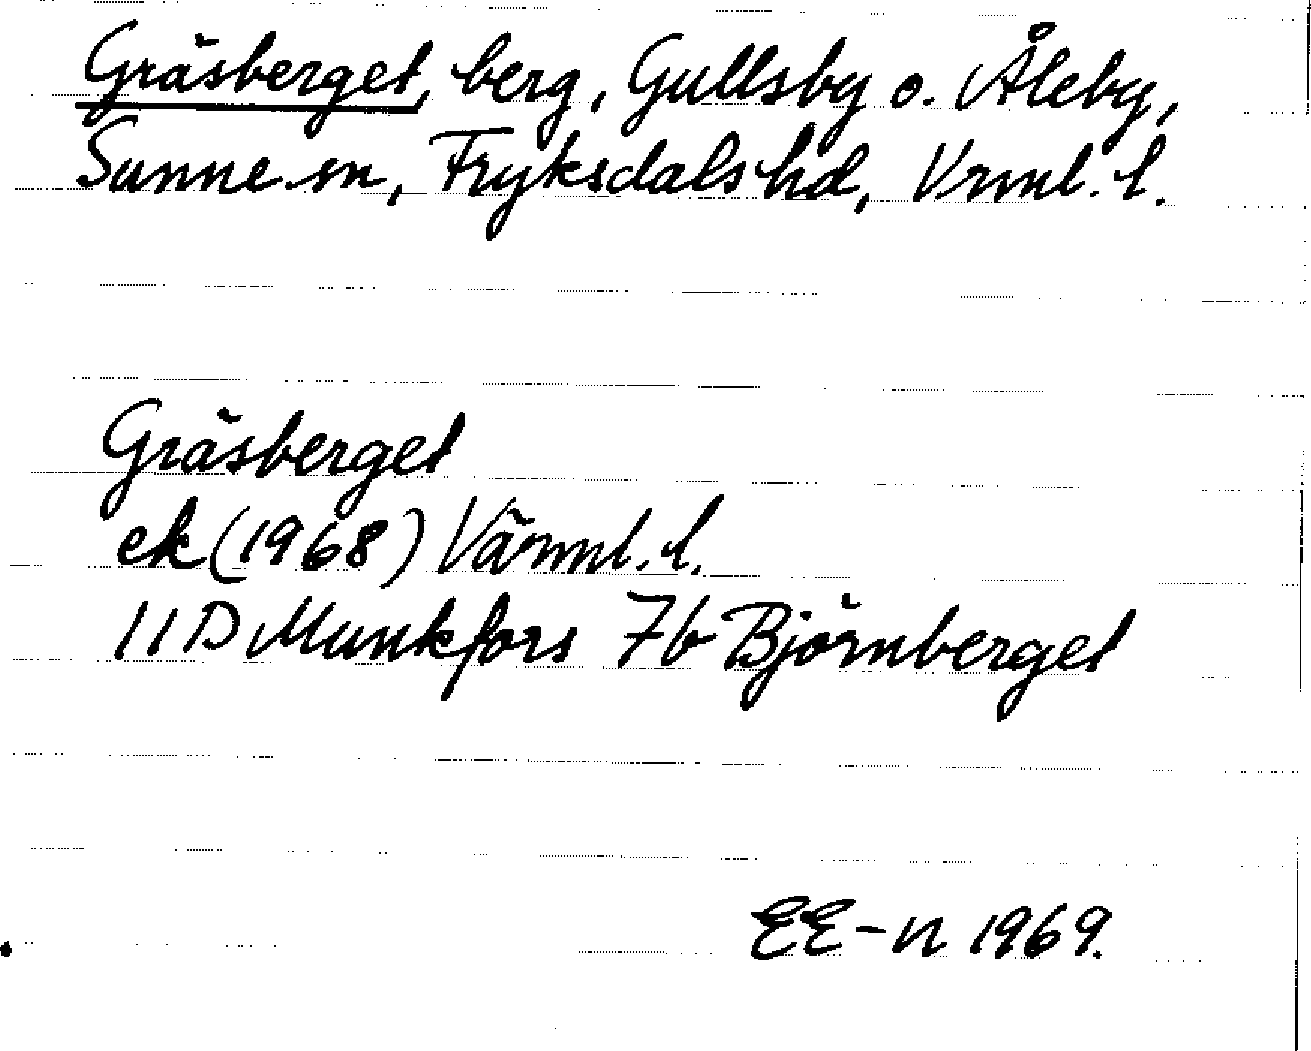 Gräsberget, berg, Gullsby o. Åleby,
Sunne sn, Fryksdals hd, Vrml. l.
Gräsberget
ek (1968) Värml. l.
11 D Munkfors 7b Björnberget
EE-n 1969.